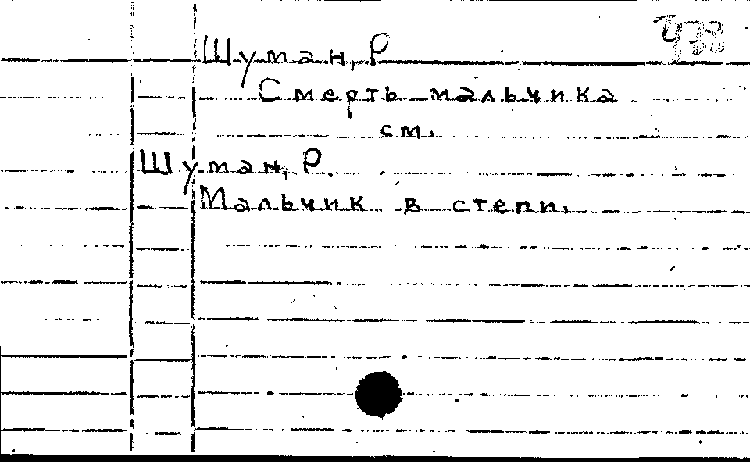 Шуман, Р
Смерть мальчика
см.
Шуман, Р.
Мальчик в степи.